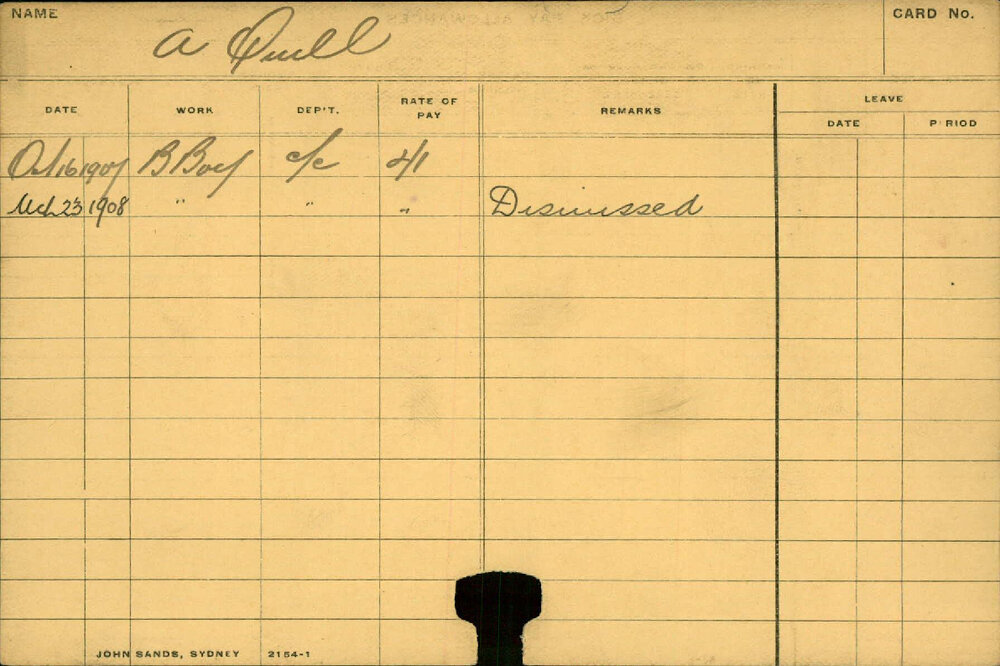 NAME A Quill CARD No.
DATE WORK DEP'T. RATE OF PAY REMARKS LEAVE
DATE P RIOD
Oct 16 1907 B Boy c/c 4/1
Mch 23 1908 " " " Dismissed
JOHN SANDS, SYDNEY 2154-1